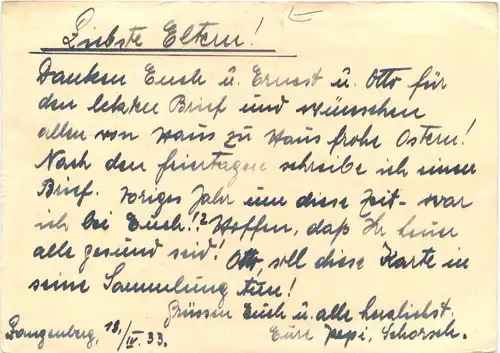 Liebste Eltern!
Danken Euch u. Ernest u. Otto für
den letzten Brief und wünschen
allen von Haus zu Haus frohe Ostern!
Nach den feiertagen schreibe ich einen
Brief. Voriges Jahr um diese Zeit - war
ich bei Euch!!? Hoffen, daß Ihr
alle gesund seid! Otto, soll diese Karte in
seine Sammlung tun!
Grüssen Euch u. alle herzlichst.
Eure Pepi, Schorsch.
Langenberg, 13./IV. 33.